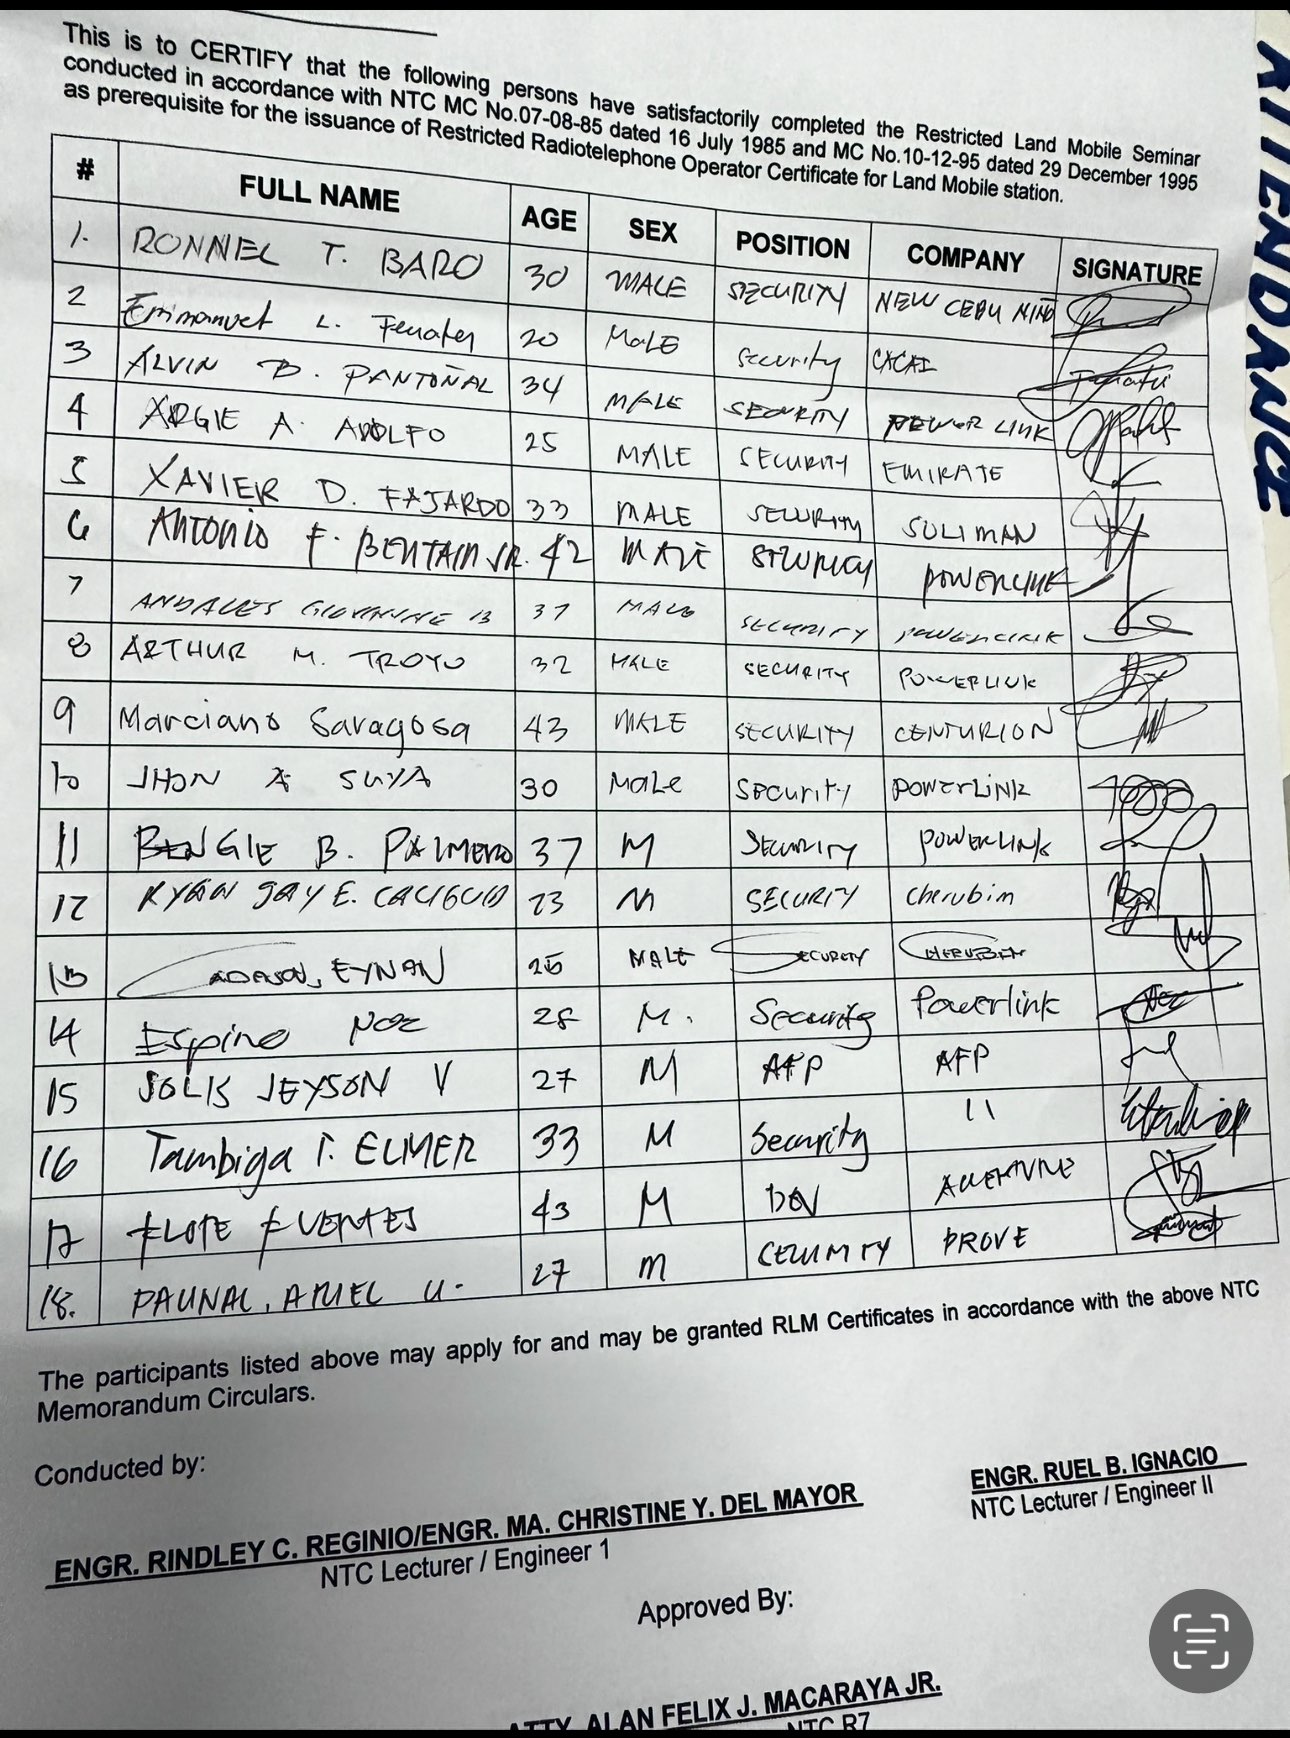 This is to CERTIFY that the following persons have satisfactorily completed the Restricted Land Mobile Seminar
conducted in accordance with NTC MC No.07-08-85 dated 16 July 1985 and MC No.10-12-95 dated 29 December 1995
as prerequisite for the issuance of Restricted Radiotelephone Operator Certificate for Land Mobile station.
ATTENDANCE
# FULL NAME AGE SEX POSITION COMPANY SIGNATURE
1. RONNEL T. BARO 30 MALE SECURITY NEW CEBU NINO
2 Emmanuel L. 20 MaLE Security CACAI
3 ALVIN D. PANTOÑAL 34 MALE SECURITY POWER LINK
4 ARGIE A. ADOLFO 25 MALE SECURITY EMIRATE
5 XAVIER D. FAJARDO 33 MALE SECURITY SULIMAN
6 Antonio F. BENTAIN JR. 42 MALE SECURITY POWERLINK
7 ANDALES GIOVANNE B 37 MALE SECURITY POWERLINK
8 ARTHUR M. TROYO 32 MALE SECURITY POWERLINK
9 Marciano Saragosa 43 MALE SECURITY CENTURION
10 JHON A SUYA 30 MaLe Security POWErLiNk
11 BENGIE B. PALMERO 37 M SECURITY POWERLINK
12 RYAN JAY E. 23 M SECURITY Cherubim
13 EYNAN MALE SECURITY CHERUBIM
14 Espino NOE 28 M. Security Powerlink
15 SOLIS JEYSON V 27 M AFP AFP
16 Tambiga T. ELMER 33 M Security 11
17 FLOTE FUENTES 43 M
18. PAUNAL, ARIEL U. 27 M CECURITY PROVE
The participants listed above may apply for and may be granted RLM Certificates in accordance with the above NTC
Memorandum Circulars.
Conducted by:
ENGR. RINDLEY C. REGINIO/ENGR. MA. CHRISTINE Y. DEL MAYOR ENGR. RUEL B. IGNACIO
NTC Lecturer / Engineer 1 NTC Lecturer / Engineer II
Approved By:
ATTY. ALAN FELIX J. MACARAYA JR.
NTC R7